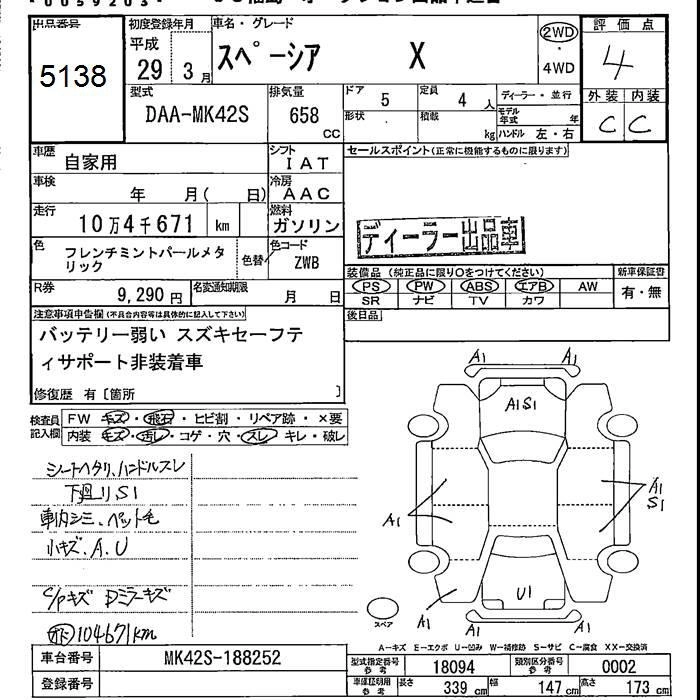 出品番号
5138
初度登録年月
平成
29 年 3 月
車名・グレード
スペーシア X
2WD
・
4WD
評価点
4
外装 内装
C C
型式
DAA-MK42S
排気量
658 CC
ドア 5
定員 4 人
形状
積載 kg
ディーラー・並行
モデル年式 年
ハンドル 左・右
車歴
自家用
シフト
IAT
車検
年 月( 日)
冷房
AAC
走行
10万4千671 km
燃料
ガソリン
色
フレンチミントパールメタ
リック
色替
色コード
ZWB
R券
9,290 円
名変通知期限
月 日
セールスポイント(正常に機能するものに限ります)
ディーラー出品車
装備品 (純正品に限り○をつけてください)
PS PW ABS エアB AW
SR ナビ TV カワ
新車保証書
有・無
後日品
注意事項申告欄(不具合内容等は具体的に記入して下さい)
バッテリー弱い スズキセーフテ
ィサポート非装着車
修復歴 有[箇所 ]
検査員
記入欄
FW キズ・飛石・ヒビ割・リペア跡・×要
内装 キズ・汚レ・コゲ・穴・スレ・キレ・破レ
シートヘタリ、ハンドルスレ
下廻り、S1
車内シミ、ペット毛
小キズ、A、U
C/Pキズ Dミラーキズ
104671km
A1 A1
A1S1
A1
A1
S1
A1
U1
A1 A1
スペア
A−キズ E−エクボ U−凹み W−補修跡 S−サビ C−腐食 XX−交換済
車台番号
MK42S-188252
登録番号
型式指定番号
参考
18094
類別区分番号
参考
0002
車体証明用
参考
長さ 339 cm
幅 147 cm
高さ 173 cm